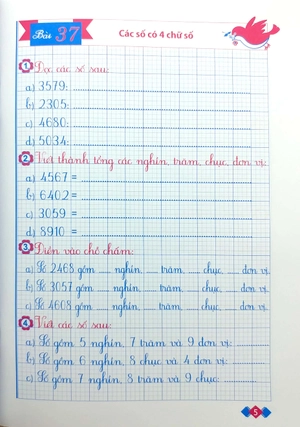 Bài 37
Các số có 4 chữ số
1 Đọc các số sau:
a) 3579:
b) 2305:
c) 4680:
d) 5034:
2 Viết thành tổng các nghìn, trăm, chục, đơn vị:
a) 4567 =
b) 6402 =
c) 3059 =
d) 8910 =
3 Điền vào chỗ chấm:
a) Số 2468 gồm ..... nghìn, ..... trăm, ..... chục, ..... đơn vị.
b) Số 3057 gồm ..... nghìn, ..... trăm, ..... chục, ..... đơn vị.
c) Số 4608 gồm ..... nghìn, ..... trăm, ..... chục, ..... đơn vị.
4 Viết các số sau:
a) Số gồm 5 nghìn, 7 trăm và 9 đơn vị:
b) Số gồm 6 nghìn, 8 chục và 4 đơn vị:
c) Số gồm 7 nghìn, 8 trăm và 9 chục:
5